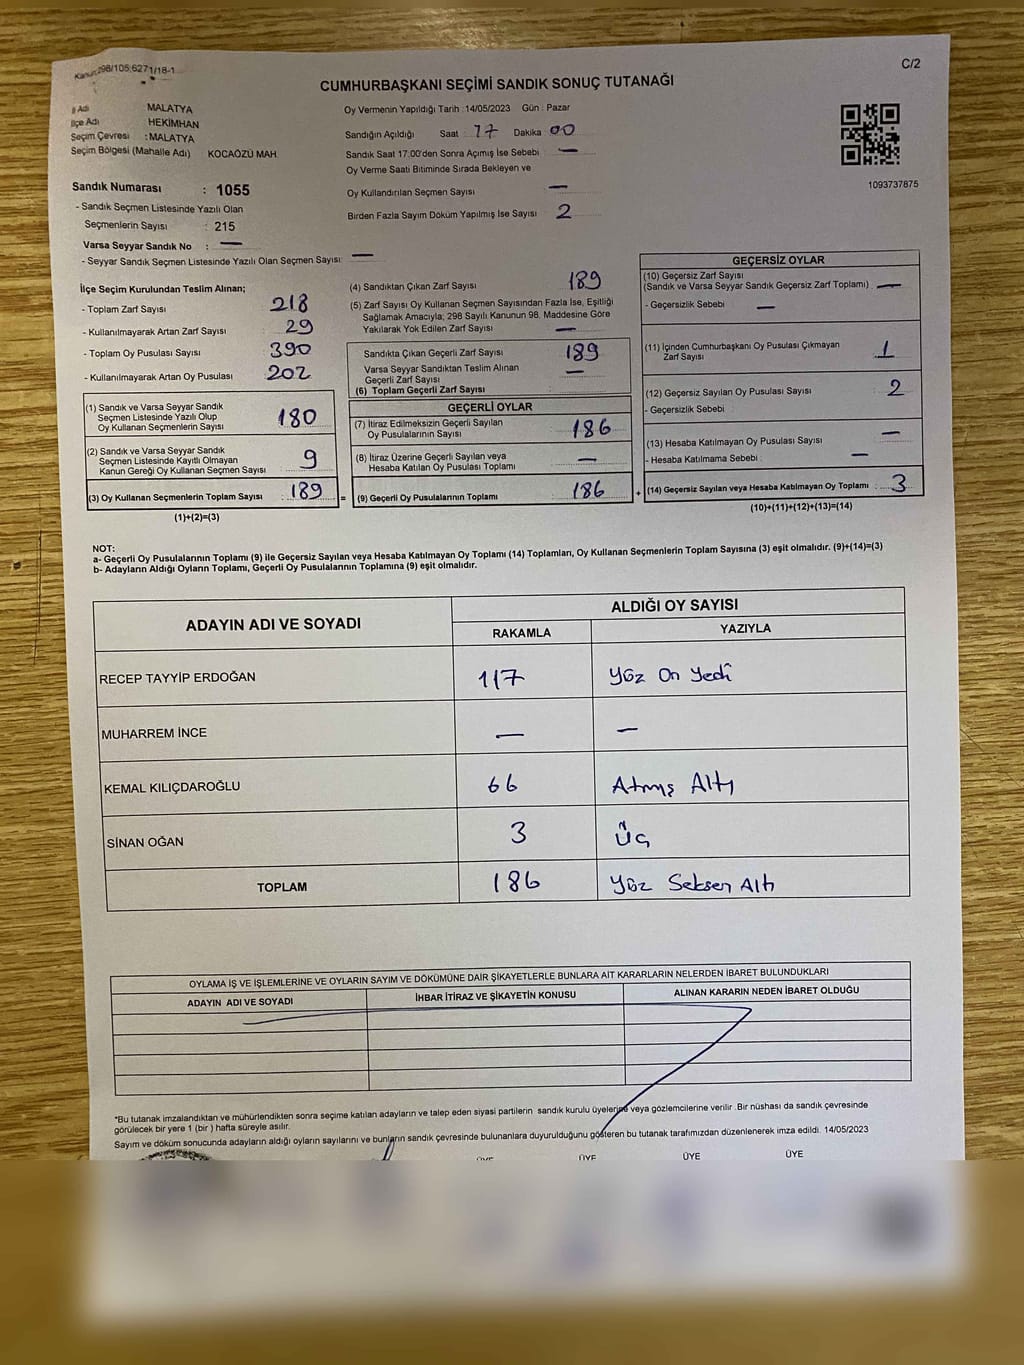 Kanun:298/105;6271/18-1
C/2
CUMHURBAŞKANI SEÇİMİ SANDIK SONUÇ TUTANAĞI
İl Adı : MALATYA
İlçe Adı : HEKİMHAN
Seçim Çevresi : MALATYA
Seçim Bölgesi (Mahalle Adı) KOCAÖZÜ MAH
Sandık Numarası : 1055
- Sandık Seçmen Listesinde Yazılı Olan
Seçmenlerin Sayısı : 215
Varsa Seyyar Sandık No : —
- Seyyar Sandık Seçmen Listesinde Yazılı Olan Seçmen Sayısı: —
Oy Vermenin Yapıldığı Tarih : 14/05/2023 Gün : Pazar
Sandığın Açıldığı Saat : 17 Dakika 00
Sandık Saat 17:00'den Sonra Açımış İse Sebebi : —
Oy Verme Saati Bitiminde Sırada Bekleyen ve
Oy Kullandırılan Seçmen Sayısı —
Birden Fazla Sayım Döküm Yapılmış İse Sayısı : 2
1093737875
İlçe Seçim Kurulundan Teslim Alınan;
- Toplam Zarf Sayısı : 218
- Kullanılmayarak Artan Zarf Sayısı : 29
- Toplam Oy Pusulası Sayısı : 390
- Kullanılmayarak Artan Oy Pusulası : 202
(1) Sandık ve Varsa Seyyar Sandık
Seçmen Listesinde Yazılı Olup
Oy Kullanan Seçmenlerin Sayısı : 180
(2) Sandık ve Varsa Seyyar Sandık
Seçmen Listesinde Kayıtlı Olmayan
Kanun Gereği Oy Kullanan Seçmen Sayısı : 9
(3) Oy Kullanan Seçmenlerin Toplam Sayısı : 189 =
(1)+(2)=(3)
(4) Sandıktan Çıkan Zarf Sayısı : 189
(5) Zarf Sayısı Oy Kullanan Seçmen Sayısından Fazla İse, Eşitliği
Sağlamak Amacıyla; 298 Sayılı Kanunun 98. Maddesine Göre
Yakılarak Yok Edilen Zarf Sayısı : —
Sandıkta Çıkan Geçerli Zarf Sayısı : 189
Varsa Seyyar Sandıktan Teslim Alınan
Geçerli Zarf Sayısı : —
(6) Toplam Geçerli Zarf Sayısı :
GEÇERLİ OYLAR
(7) İtiraz Edilmeksizin Geçerli Sayılan
Oy Pusulalarının Sayısı : 186
(8) İtiraz Üzerine Geçerli Sayılan veya
Hesaba Katılan Oy Pusulası Toplamı : —
(9) Geçerli Oy Pusulalarının Toplamı : 186 +
GEÇERSİZ OYLAR
(10) Geçersiz Zarf Sayısı
(Sandık ve Varsa Seyyar Sandık Geçersiz Zarf Toplamı) : —
- Geçersizlik Sebebi : —
(11) İçinden Cumhurbaşkanı Oy Pusulası Çıkmayan
Zarf Sayısı : 1
(12) Geçersiz Sayılan Oy Pusulası Sayısı : 2
- Geçersizlik Sebebi :
(13) Hesaba Katılmayan Oy Pusulası Sayısı : —
- Hesaba Katılmama Sebebi : —
(14) Geçersiz Sayılan veya Hesaba Katılmayan Oy Toplamı : 3
(10)+(11)+(12)+(13)=(14)
NOT:
a- Geçerli Oy Pusulalarının Toplamı (9) ile Geçersiz Sayılan veya Hesaba Katılmayan Oy Toplamı (14) Toplamları, Oy Kullanan Seçmenlerin Toplam Sayısına (3) eşit olmalıdır. (9)+(14)=(3)
b- Adayların Aldığı Oyların Toplamı, Geçerli Oy Pusulalarının Toplamına (9) eşit olmalıdır.
ADAYIN ADI VE SOYADI
ALDIĞI OY SAYISI
RAKAMLA YAZIYLA
RECEP TAYYİP ERDOĞAN 117 Yüz On Yedi
MUHARREM İNCE — —
KEMAL KILIÇDAROĞLU 66 Atmış Altı
SİNAN OĞAN 3 Üç
TOPLAM 186 Yüz Seksen Altı
OYLAMA İŞ VE İŞLEMLERİNE VE OYLARIN SAYIM VE DÖKÜMÜNE DAİR ŞİKAYETLERLE BUNLARA AİT KARARLARIN NELERDEN İBARET BULUNDUKLARI
ADAYIN ADI VE SOYADI İHBAR İTİRAZ VE ŞİKAYETİN KONUSU ALINAN KARARIN NEDEN İBARET OLDUĞU
*Bu tutanak imzalandıktan ve mühürlendikten sonra seçime katılan adayların ve talep eden siyasi partilerin sandık kurulu üyelerine veya gözlemcilerine verilir .Bir nüshası da sandık çevresinde
görülecek bir yere 1 (bir ) hafta süreyle asılır.
Sayım ve döküm sonucunda adayların aldığı oyların sayılarını ve bunların sandık çevresinde bulunanlara duyurulduğunu gösteren bu tutanak tarafımızdan düzenlenerek imza edildi. 14/05/2023
ÜYE ÜYE ÜYE ÜYE